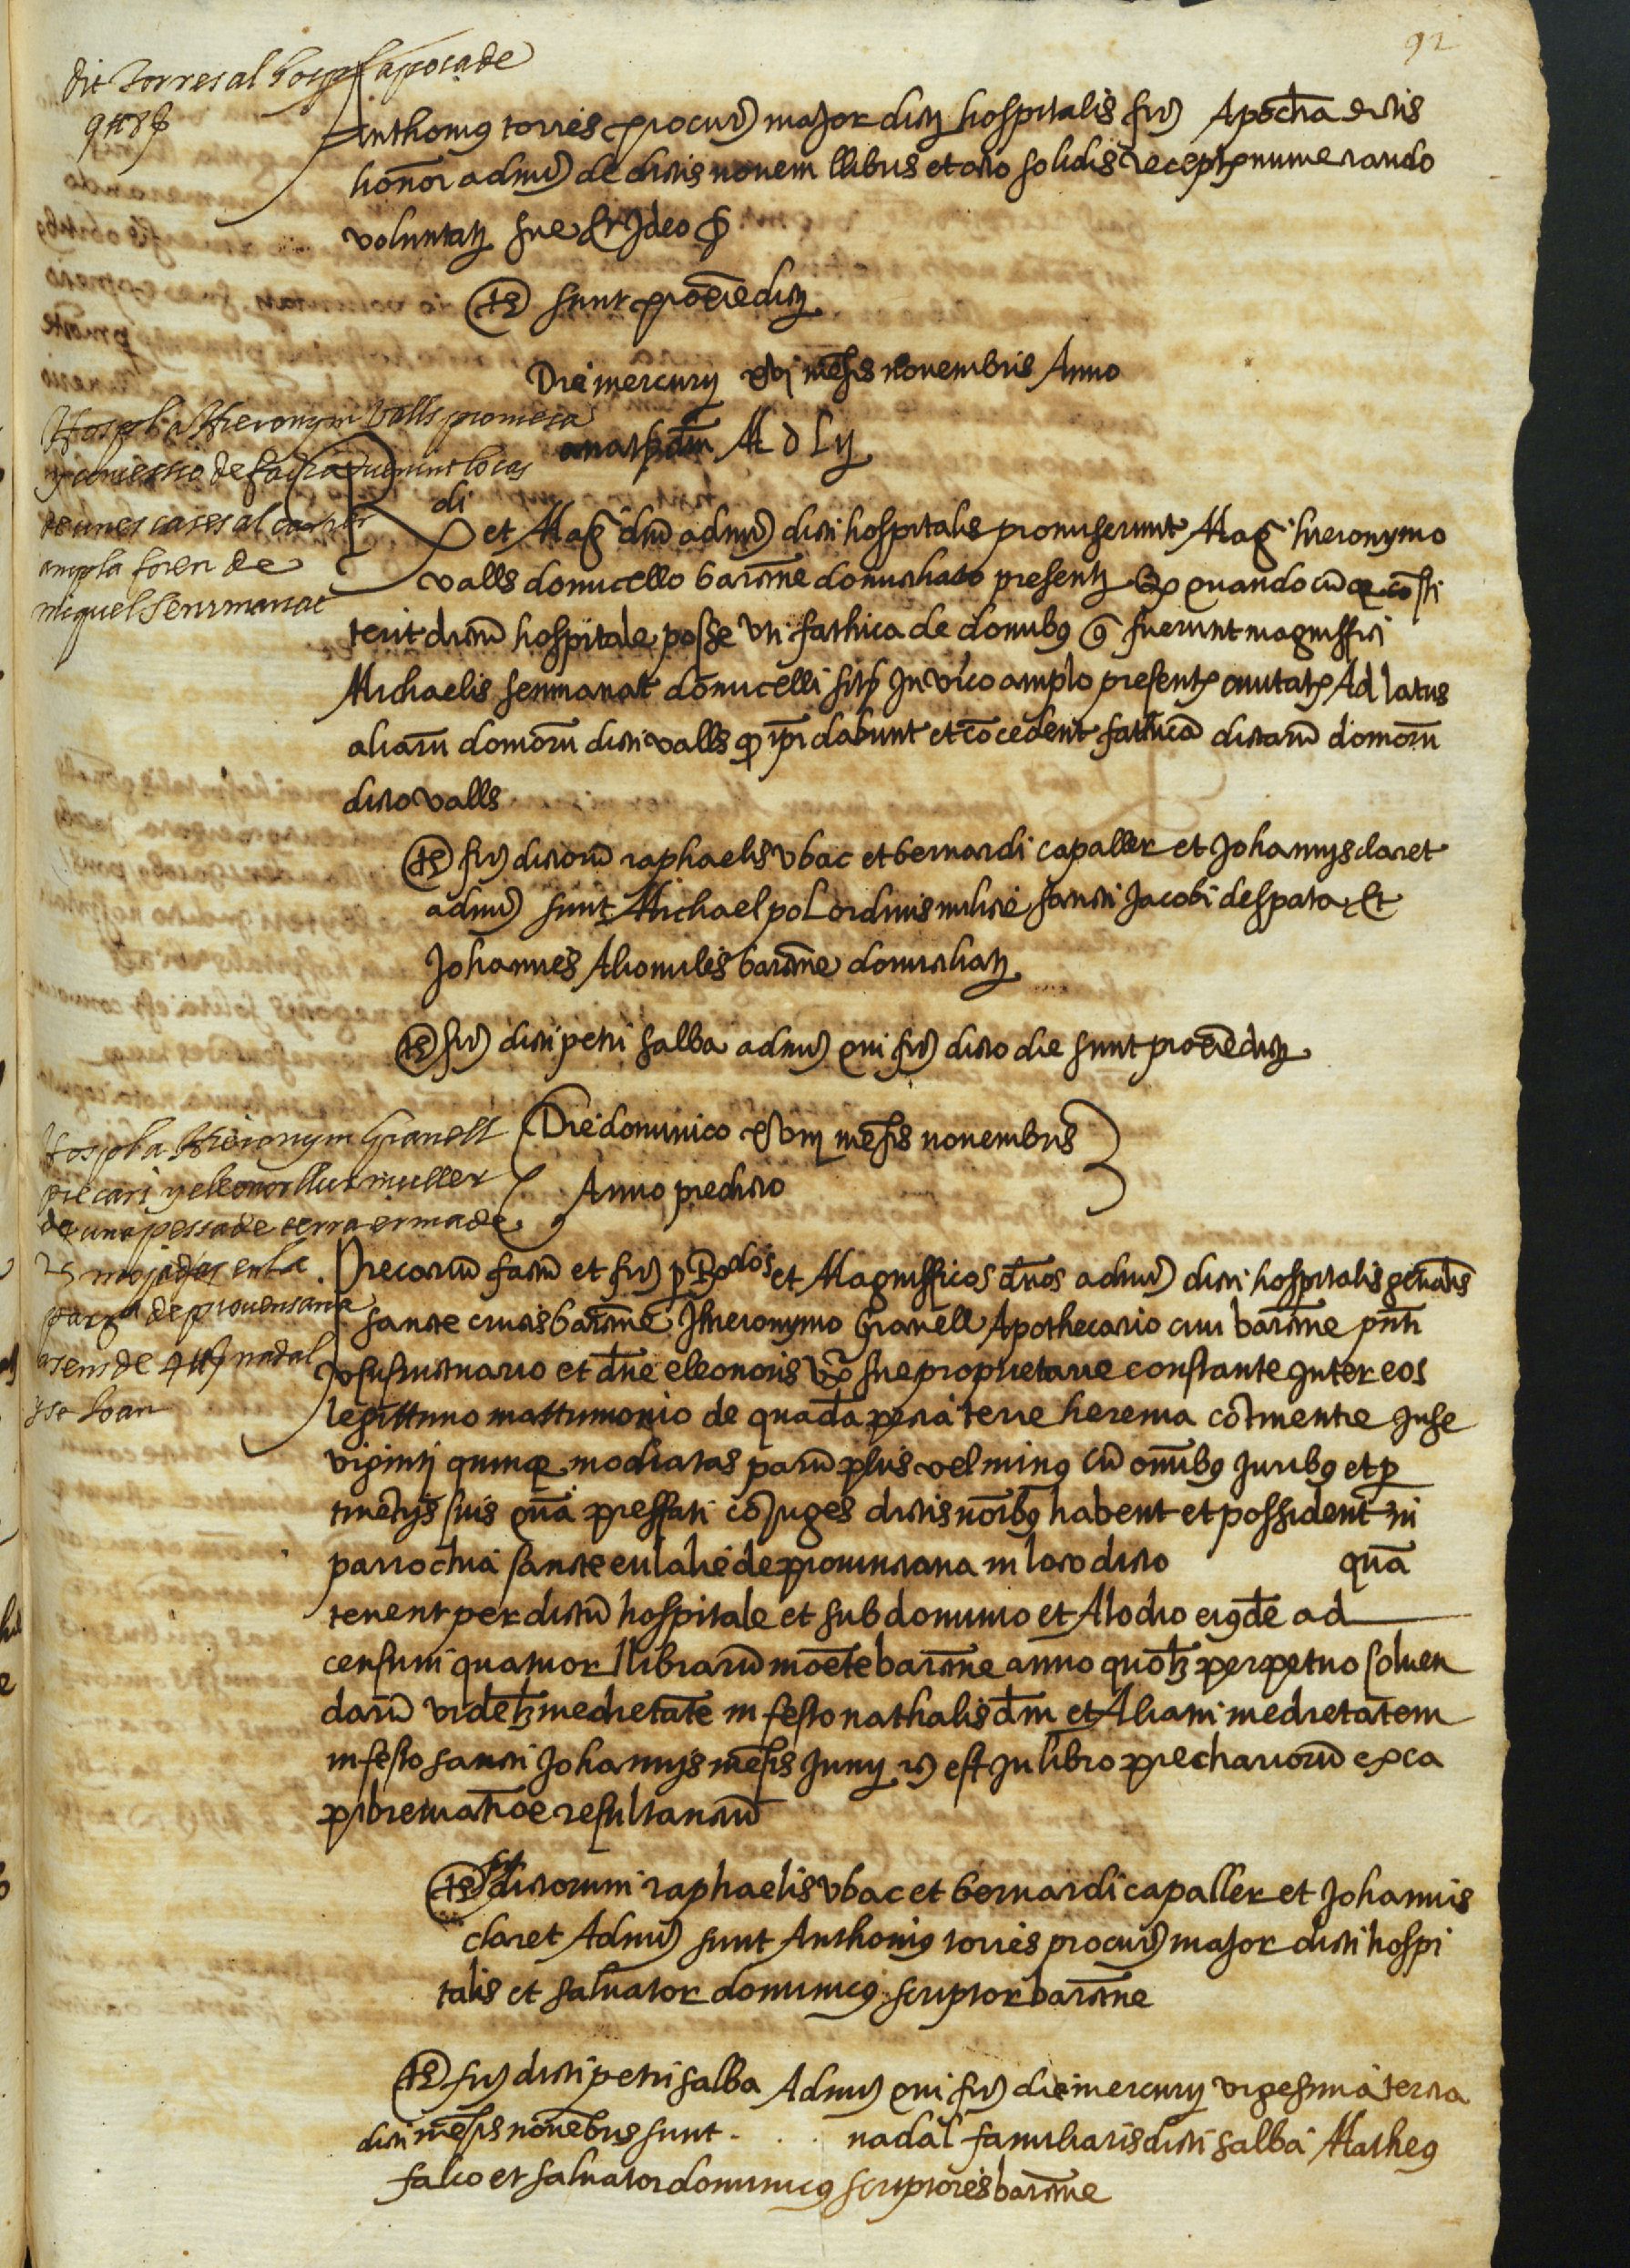 92
dit Torres al hospl apoca de
9 ll 8 s
Anthonius torres procur) major dicti hospitalis fir) Apocham dictis
honor admir) de dictis novem llibris et octo solidis receptis numerando
voluntati sue Et Ideo &
Ts sunt proxime dicti
Die mercurij xvj mensis novembris Anno
a nati dni M D Lij
Hospl a Hieronym Valls promesa
y concessio de fadiga
de unes cases al carrer
ampla foren de
miquel Senmanat
Rdi et Magci dni admir) dicti hospitalis promiserunt Magco hieronymo
valls domicello barcine domiciliato presenti & quandocumque consti
terit dictum hospitale posse uti fathica de domibus que fuerunt magnifici
Michaelis senmanat domicelli sitis In vico amplo presentis civitatis Ad latus
aliarum domorum dicti valls quod ipsi dabunt et concedent fathicam dictarum domorum
dicto valls
Ts fir) dictorum raphaelis ubac et bernardi capaller et Johannis claret
admir) sunt Michael pol ordinis milicie sancti Jacobi de spata Et
Johannes Alionules barcine domiciliati
Ts fir) dicti petri salba admir) qui fir) dicto die sunt proxime dicti
Hospl a Hieronym Granell
precari y elleonor llur muller
de una pessa de terra erma de
25 mojades en la
parrqa de provensana
a sens de 4 ll nadal
y st Joan
Die dominico xviij mensis novembris
Anno predicto
Precarium factum et fir) per Rdos et Magnifficos dnos admir) dicti hospitalis generalis
sancte crucis barcine Hieronymo Granell Apothecario civi barcine pnti
usufructuario et dne eleonoris ux) sue proprietarie constante Inter eos
legittimo mattrimonio de quadam pecia terre herema continente In se
viginti quinque modiatas parum plus vel minus cum omnibus Juribus et per
tinentijs suis quam preffati conjuges dictis nominibus habent et possident in
parrochia sancte eulalie de provinciana in loco dicto quam
tenent per dictum hospitale et sub dominio et Alodio eiusdem ad
censum quatuor llibrarum monete barcine anno quolibet perpetuo solven
darum videlicet medietatem in festo nathalis dni et Aliam medietatem
in festo sancti Johannis mensis Junij ut est In libro prechariorum ex ca
pibrevatione resultantium
Ts fir dictorum raphaelis ubac et bernardi capaller et Johannis
claret Admir) sunt Anthonius torres procur) major dicti hospi
talis et salvator dominicus scriptor barcine
Ts fir) dicti petri salba Admir) qui fir) die mercurij vigesima tercia
dicti mensis novembris sunt . . . nadal familiaris dicti salba Matheus
falco et salvator dominicus scriptores barcine